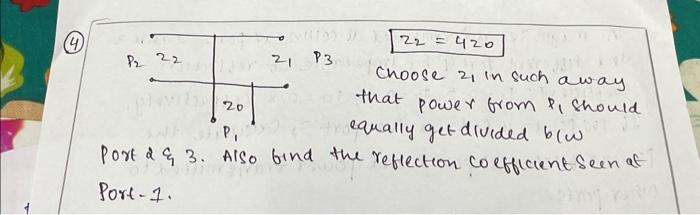 4
z2 = 4z0
P2 z2 z1 P3
choose z1 in such a way
z0
that power from P1 should
P1
equally get divided b/w
Port 2 & 3. Also find the reflection coefficient seen at
Port-1.